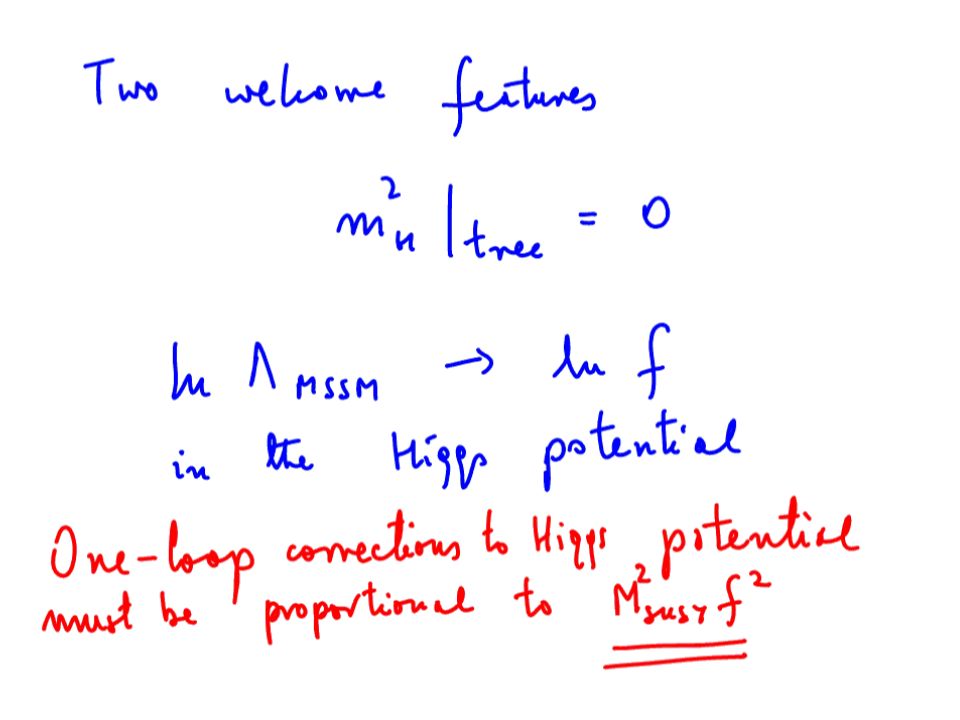 Two welcome features
m²_H |_tree = 0
ln Λ_MSSM → ln f
in the Higgs potential
One-loop corrections to Higgs potential
must be proportional to M²_SUSY f²